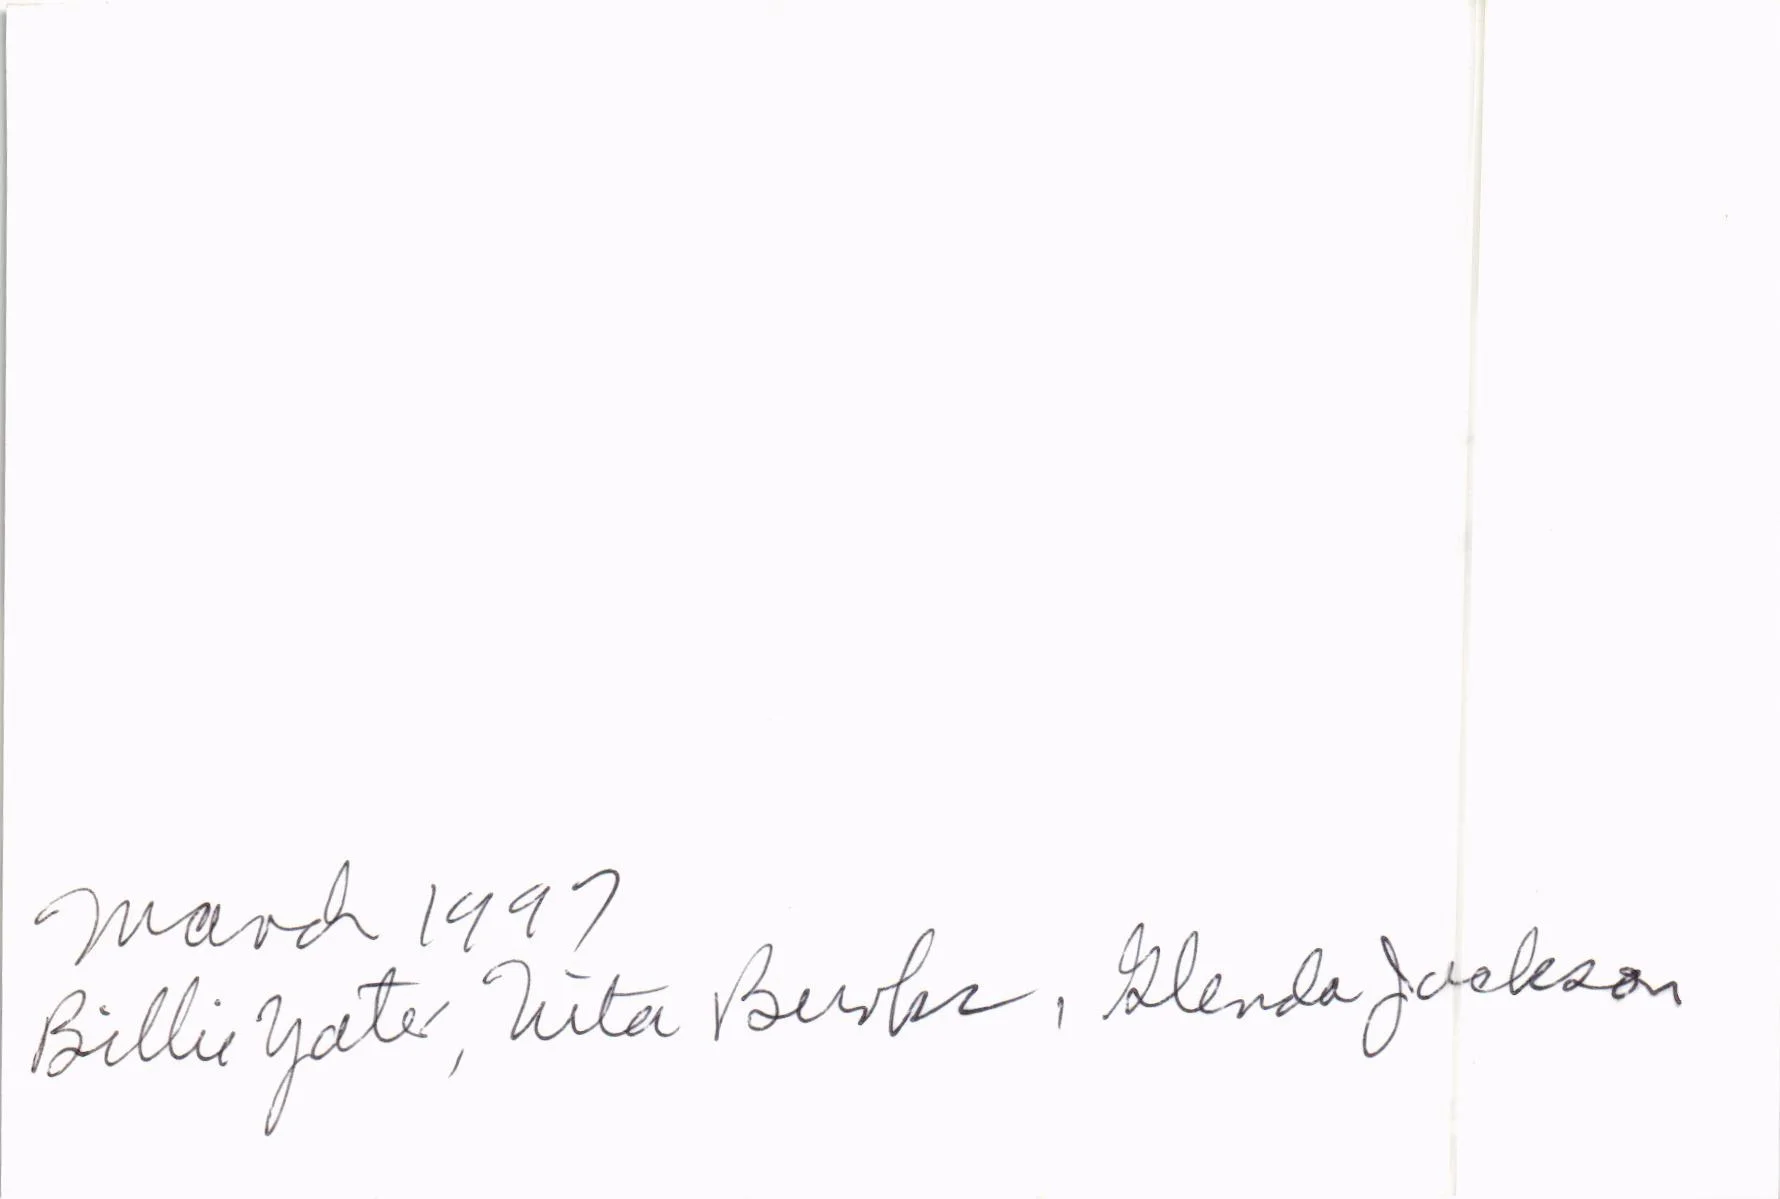 March 1997
Billie Yater, Nita Burks, Glenda Jackson